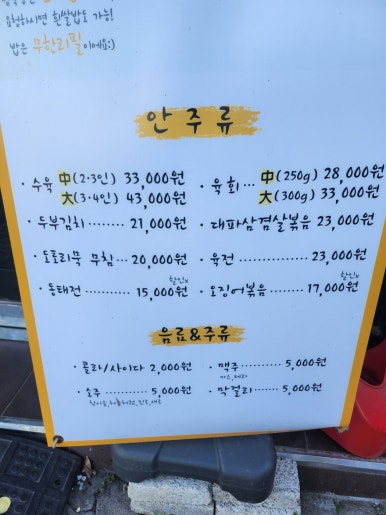 요청하시면 흰쌀밥도 가능!
밥은 무한리필이에요:)
안주류
· 수육 中(2·3인) 33,000원
大(3·4인) 43,000원
· 두부김치 ........ 21,000원
· 도토리묵 무침 ... 20,000원
할인x
· 동태전 ........... 15,000원
· 육회 ... 中(250g) 28,000원
大(300g) 33,000원
· 대파삼겹살볶음 23,000원
· 육전 .............. 23,000원
할인x
· 오징어볶음 ........ 17,000원
음료&주류
· 콜라/사이다 2,000원
· 소주 ............ 5,000원
· 맥주 ............ 5,000원
카스, 테라
· 막걸리 .......... 5,000원